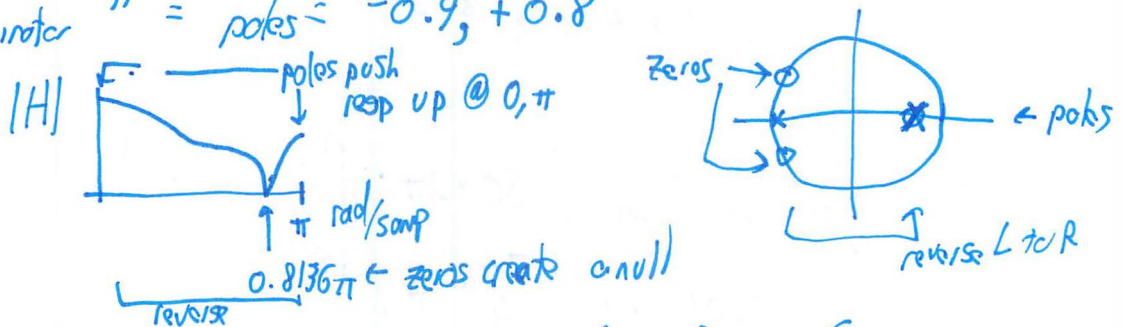 = poles = -0.9, +0.8
|H|
poles push
resp up @ 0, π
π rad/samp
0.8136π ← zeros create a null
reverse
zeros →
← poles
reverse L to R